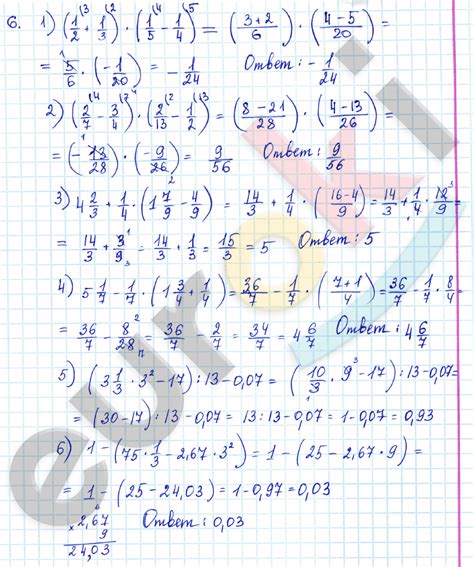 6. 1) (1/2 + 1/3) · (1/5 − 1/4) = ((3+2)/6) · ((4−5)/20) =
= 5/6 · (−1/20) = −1/24 Ответ: −1/24
2) (2/7 − 3/4) · (2/13 − 1/2) = ((8−21)/28) · ((4−13)/26) =
= (−13/28) · (−9/26) = 9/56 Ответ: 9/56
3) 4 2/3 + 1/4 · (1 7/9 − 4/9) = 14/3 + 1/4 · ((16−4)/9) = 14/3 + 1/4 · 12/9 =
= 14/3 + 3/9 = 14/3 + 1/3 = 15/3 = 5 Ответ: 5
4) 5 1/7 − 1/7 · (1 3/4 + 1/4) = 36/7 − 1/7 · ((7+1)/4) = 36/7 − 1/7 · 8/4
= 36/7 − 8/28 = 36/7 − 2/7 = 34/7 = 4 6/7 Ответ: 4 6/7
5) (3 1/3 · 3² − 17) : 13 − 0,07 = (10/3 · 9 − 17) : 13 − 0,07 =
= (30 − 17) : 13 − 0,07 = 13 : 13 − 0,07 = 1 − 0,07 = 0,93
6) 1 − (75 · 1/3 − 2,67 · 3²) = 1 − (25 − 2,67 · 9) =
= 1 − (25 − 24,03) = 1 − 0,97 = 0,03
× 2,67 Ответ: 0,03
9
24,03
euroki